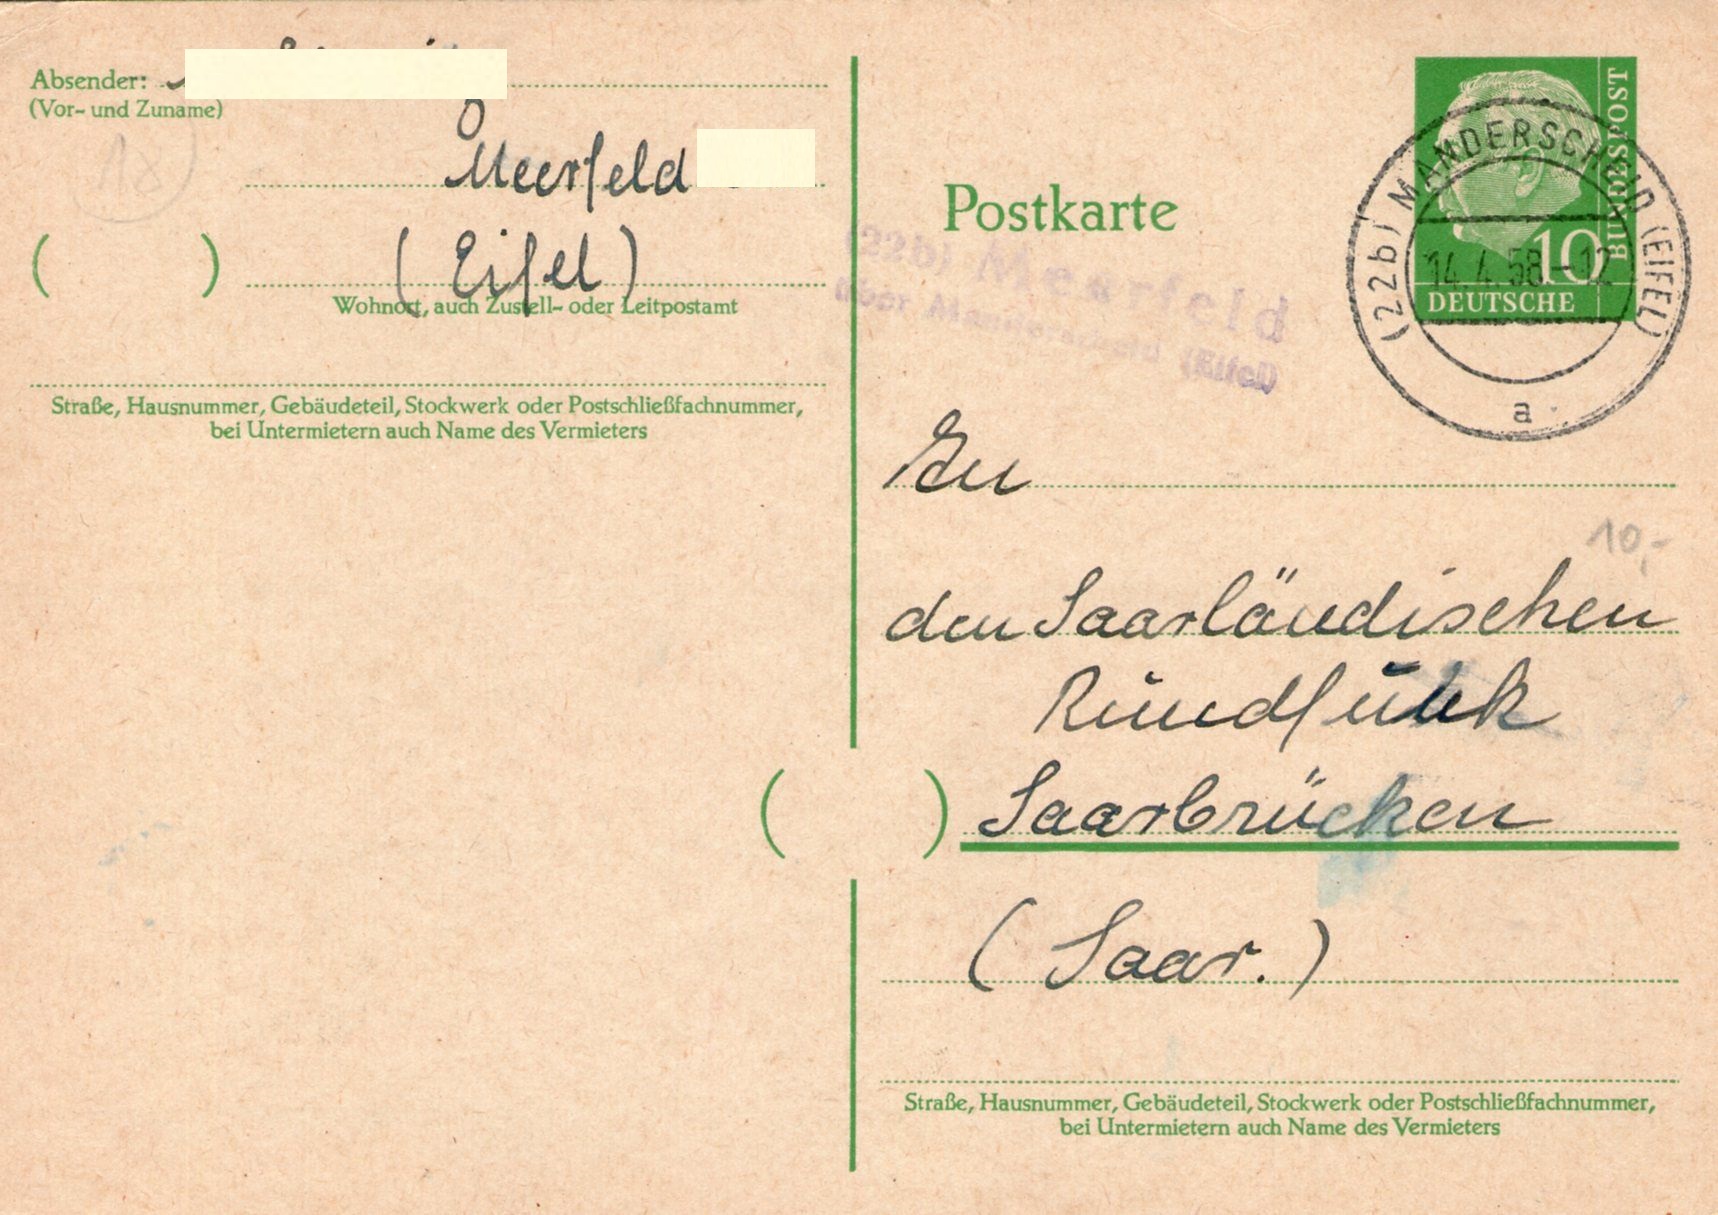 Absender:
(Vor- und Zuname)
18
Meerfeld
(Eifel)
Wohnort, auch Zustell- oder Leitpostamt
Straße, Hausnummer, Gebäudeteil, Stockwerk oder Postschließfachnummer,
bei Untermietern auch Name des Vermieters
Postkarte
(22b) Meerfeld
über Manderscheid (Eifel)
DEUTSCHE
BUNDESPOST
10
(22b) MANDERSCHEID (EIFEL)
14.4.58-12
a
An
10,-
den Saarländischen
Rundfunk
Saarbrücken
(Saar.)
Straße, Hausnummer, Gebäudeteil, Stockwerk oder Postschließfachnummer,
bei Untermietern auch Name des Vermieters